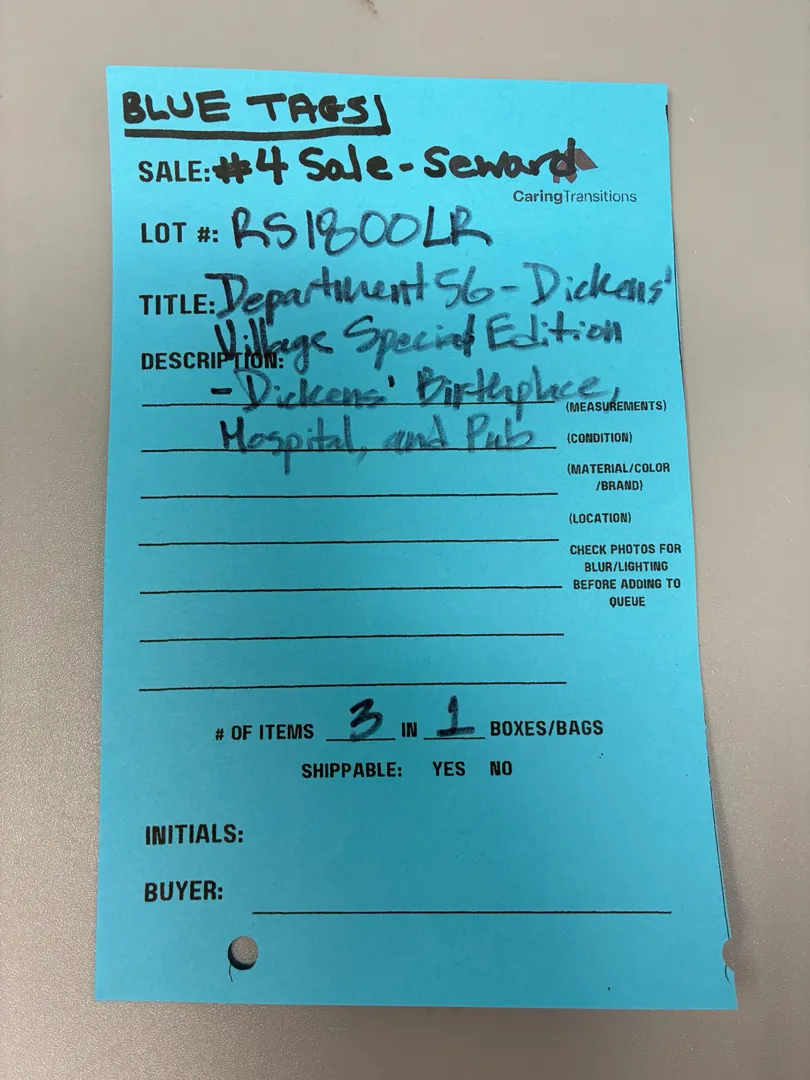 BLUE TAGS
SALE: #4 Sale - Seward
CaringTransitions
LOT #: RS1800LR
TITLE: Department 56 - Dickens'
Village Special Edition
DESCRIPTION:
- Dickens' Birthplace,
(MEASUREMENTS)
Hospital, and Pub
(CONDITION)
(MATERIAL/COLOR
/BRAND)
(LOCATION)
CHECK PHOTOS FOR
BLUR/LIGHTING
BEFORE ADDING TO
QUEUE
# OF ITEMS 3 IN 1 BOXES/BAGS
SHIPPABLE: YES NO
INITIALS:
BUYER: